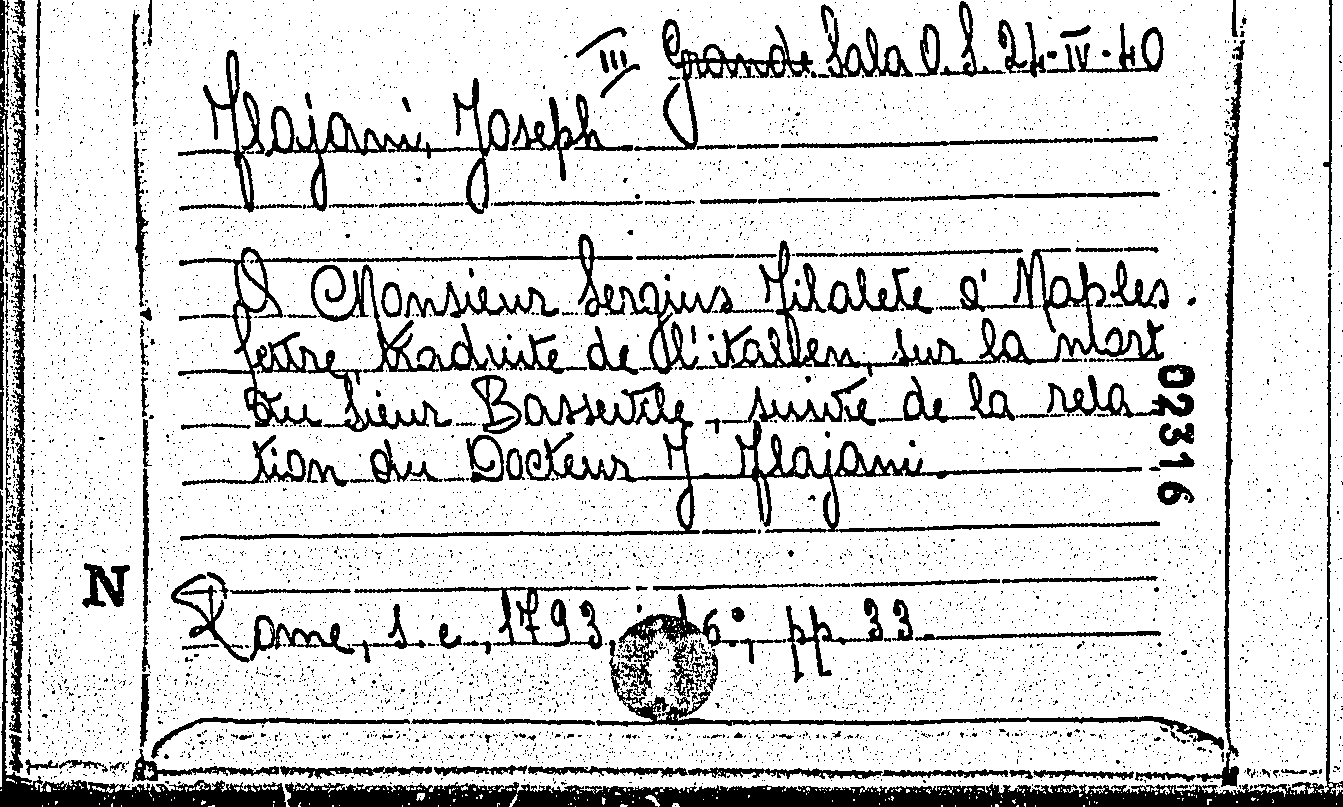 III Grande Sala O. S. 24-IV-40
Flajani, Joseph
A Monsieur Sergius Filalete a' Naples.
lettre, traduite de l'italien, sur la mort
du Sieur Basseville, suivie de la rela
tion du Docteur J. Flajani.
Rome, s. e., 1793, 16°, pp. 33.
N
02316